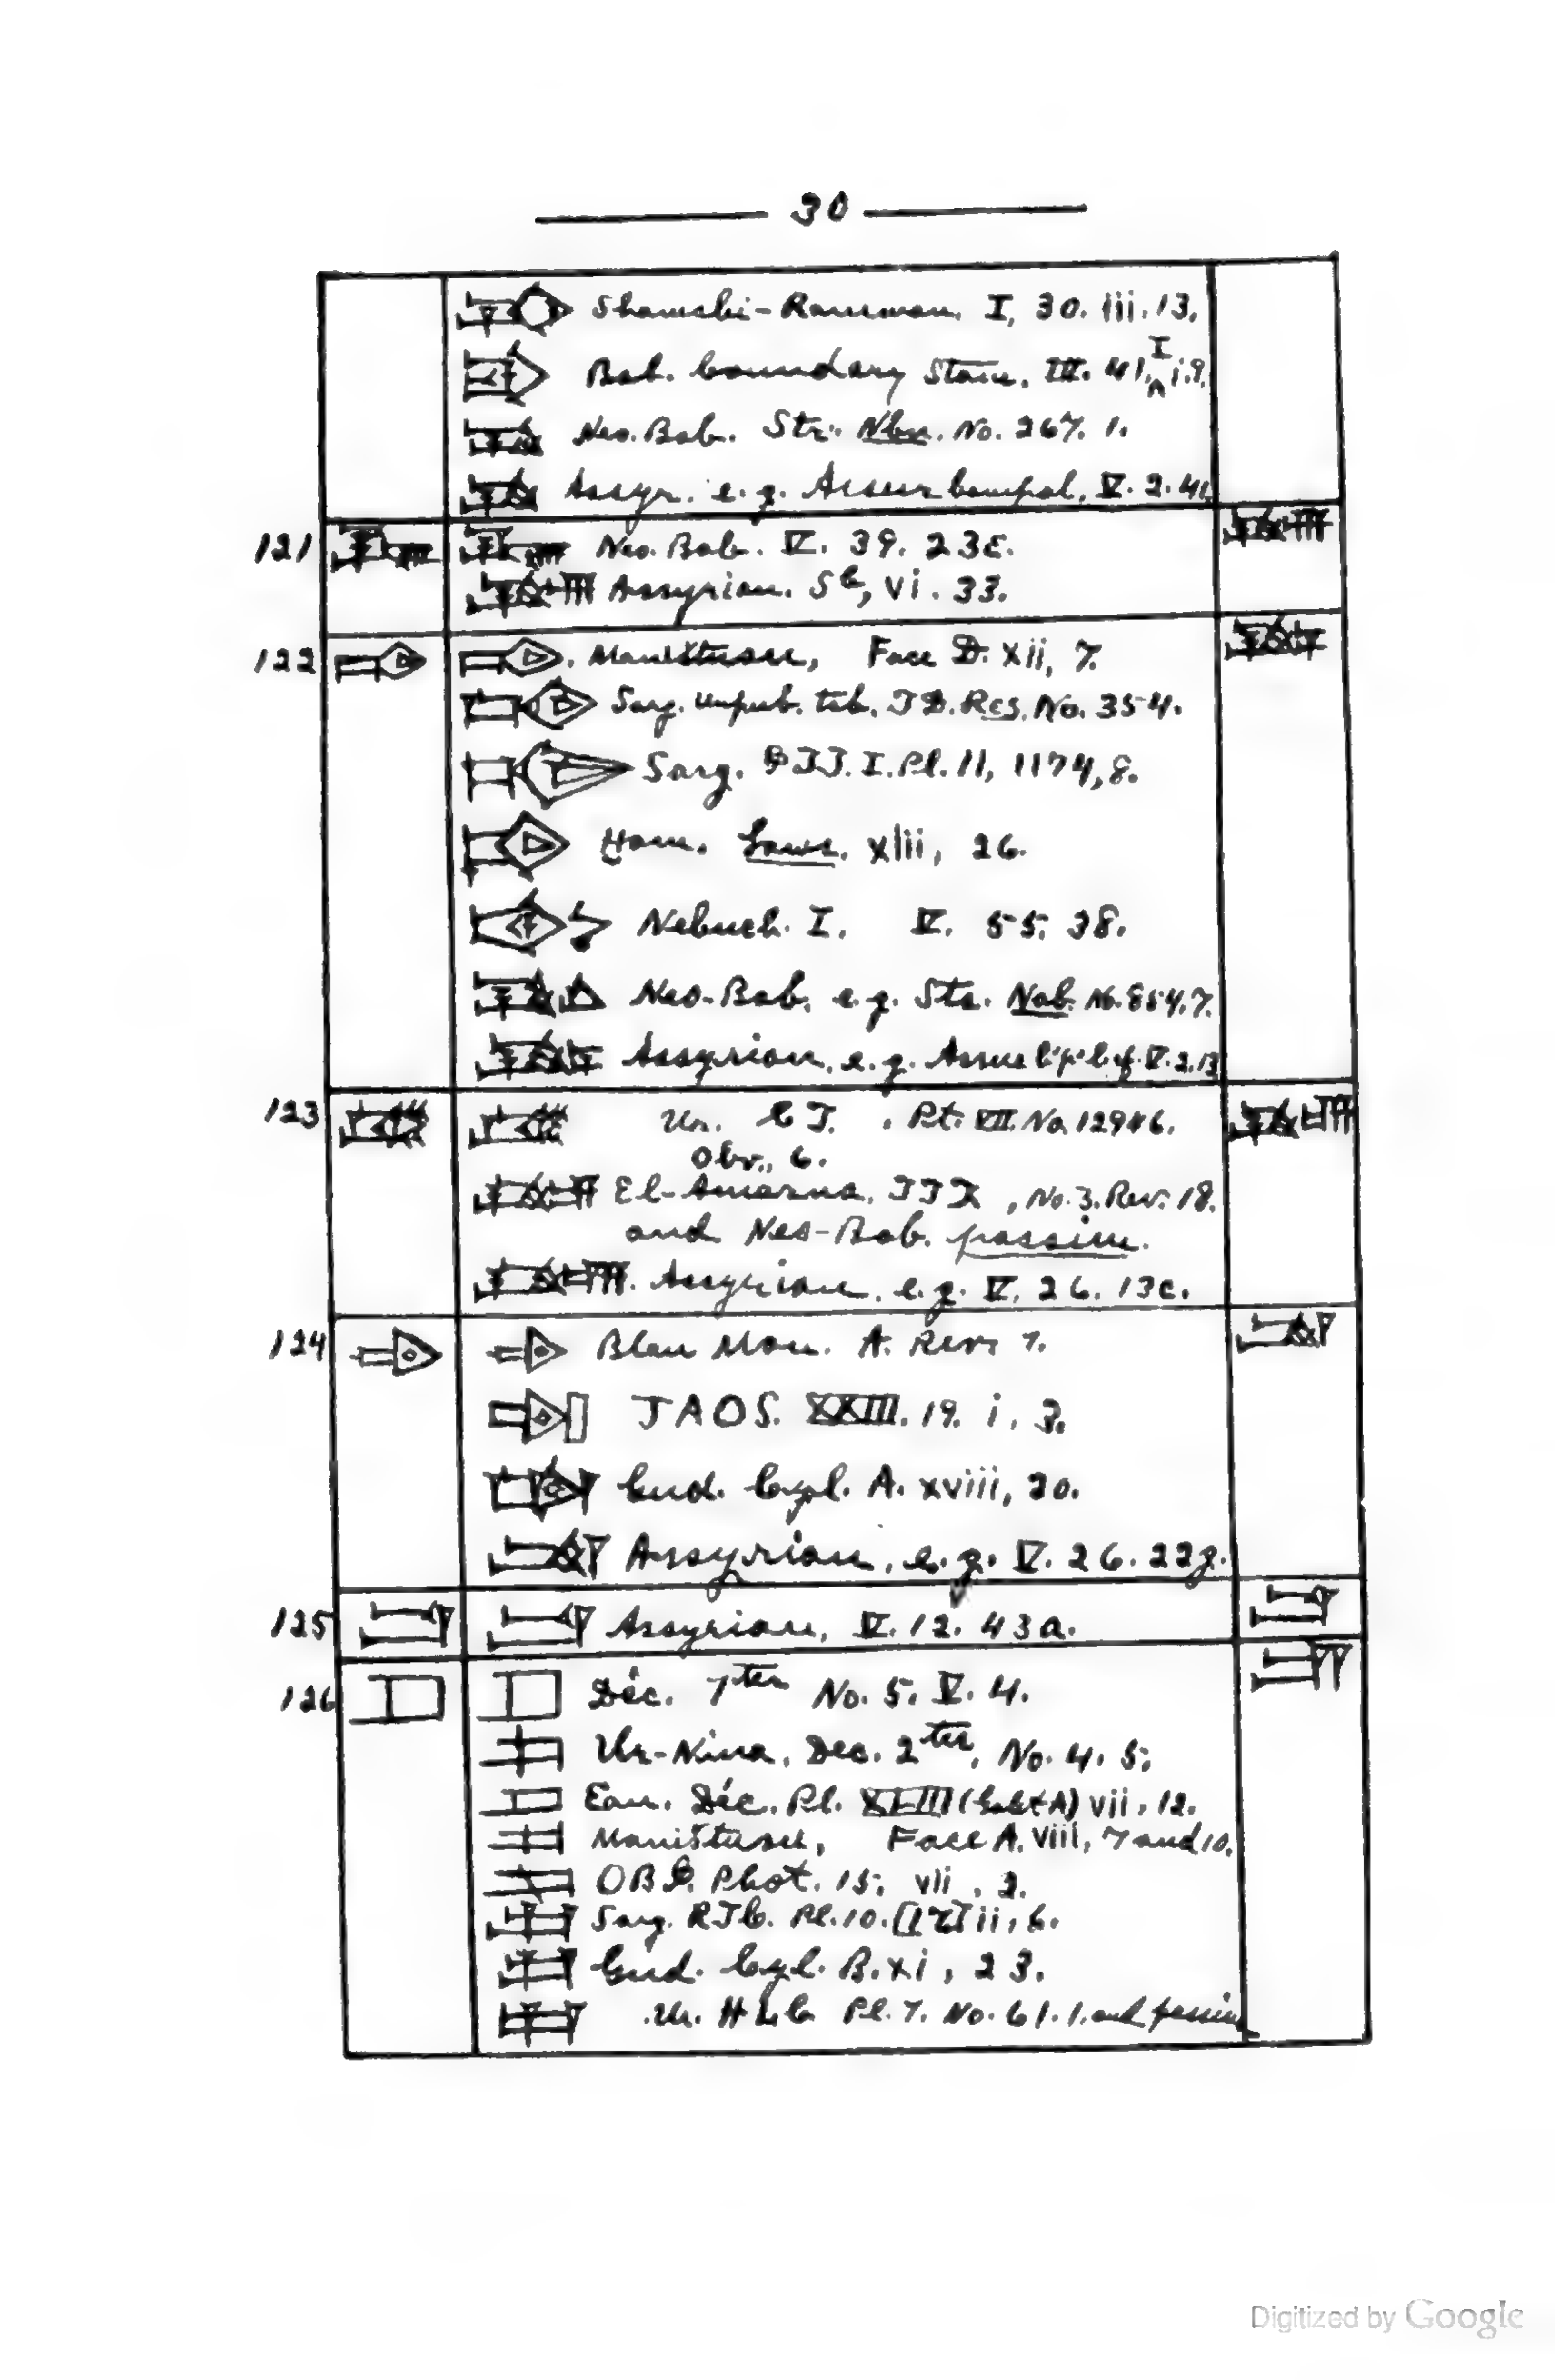 30
Shamshi-Ramman, I, 30. iii. 13.
Bab. boundary Stone, III. 41, I i. 9.
Neo. Bab. Str. Nbn. No. 267. 1.
Assyr. e.g. Assurbanipal, V. 2. 41
121 Neo. Bab. V. 39. 23c.
Assyrian. Sb, vi. 33.
122 Maništusu, Face D. xii, 7.
Sarg. Unpub. tab. TD. Res. No. 354.
Sarg. I. Pl. 11, 1174, 8.
Ham. Laws. xlii, 26.
Nebuch. I. V. 55. 38.
Neo-Bab. e.g. Str. Nab. No. 854. 7.
Assyrian, e.g. V. 2. 13
123 Ur. CT. Pt. VII No. 12946.
Obv., 6.
El-Amarna, No. 3. Rev. 18.
and Neo-Bab. passim.
Assyrian, e.g. V. 26. 13c.
124 Blau Mon. A. Rev. 7.
JAOS. XXIII. 19. i, 3.
Gud. Cyl. A. xviii, 20.
Assyrian, e.g. V. 26. 22g.
125 Assyrian, V. 12. 43a.
126 Déc. 1ter No. 5. V. 4.
Ur-Nina, Dec. 2ter, No. 4. 5.
Ean. Déc. Pl. XLIII (Galet A) vii, 12.
Maništusu, Face A. viii, 7 and 10.
OBI. Phot. 15, vii, 2.
Sarg. RTC. Pl. 10. ii, 6.
Gud. Cyl. B. xi, 23.
Ur. HLC Pl. 7. No. 61. 1. and passim
Digitized by Google